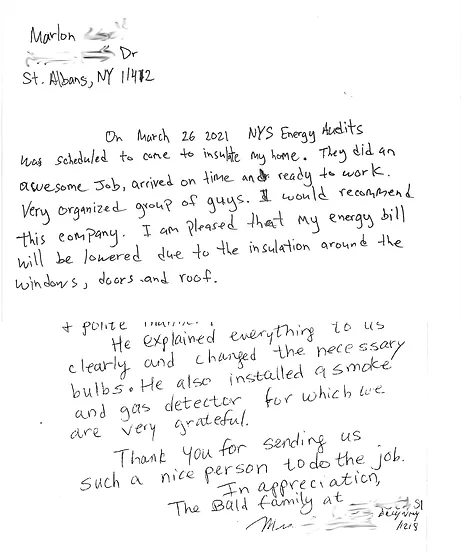 Marlon
Dr
St. Albans, NY 11412
On March 26 2021 NYS Energy Audits
was scheduled to come to insulate my home. They did an
awesome Job, arrived on time and ready to work.
Very organized group of guys. I would recommend
this company. I am pleased that my energy bill
will be lowered due to the insulation around the
windows, doors and roof.
+ polite manner.
He explained everything to us
clearly and changed the necessary
bulbs. He also installed a smoke
and gas detector for which we
are very grateful.
Thank you for sending us
such a nice person to do the job.
In appreciation,
The Bald family at